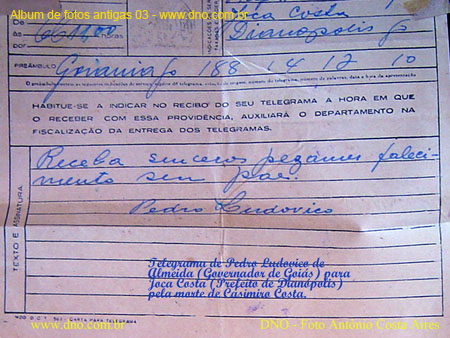 Album de fotos antigas 03 - www.dno.com.br
Joca Costa
Dianopolis go
às horas
por
PREÂMBULO
Goiania go 188 14 12 10
HABITUE-SE A INDICAR NO RECIBO DO SEU TELEGRAMA A HORA EM QUE
O RECEBER COM ESSA PROVIDÊNCIA, AUXILIARÁ O DEPARTAMENTO NA
FISCALIZAÇÃO DA ENTREGA DOS TELEGRAMAS.
Receba sinceros pezames faleci-
mento seu pae.
Pedro Ludovico
TEXTO E ASSINATURA
Telegrama de Pedro Ludovico de
Almeida (Governador de Goiás) para
Joca Costa (Prefeito de Dianópolis)
pela morte de Casimiro Costa.
MOD. D.C.T. - CARTA PARA TELEGRAMA
www.dno.com.br
DNO - Foto Antônio Costa Aires